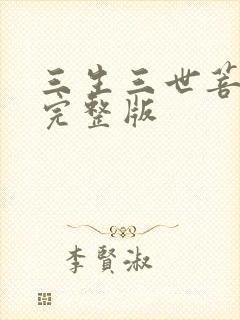 三生三世菩
完整版
李賢淑